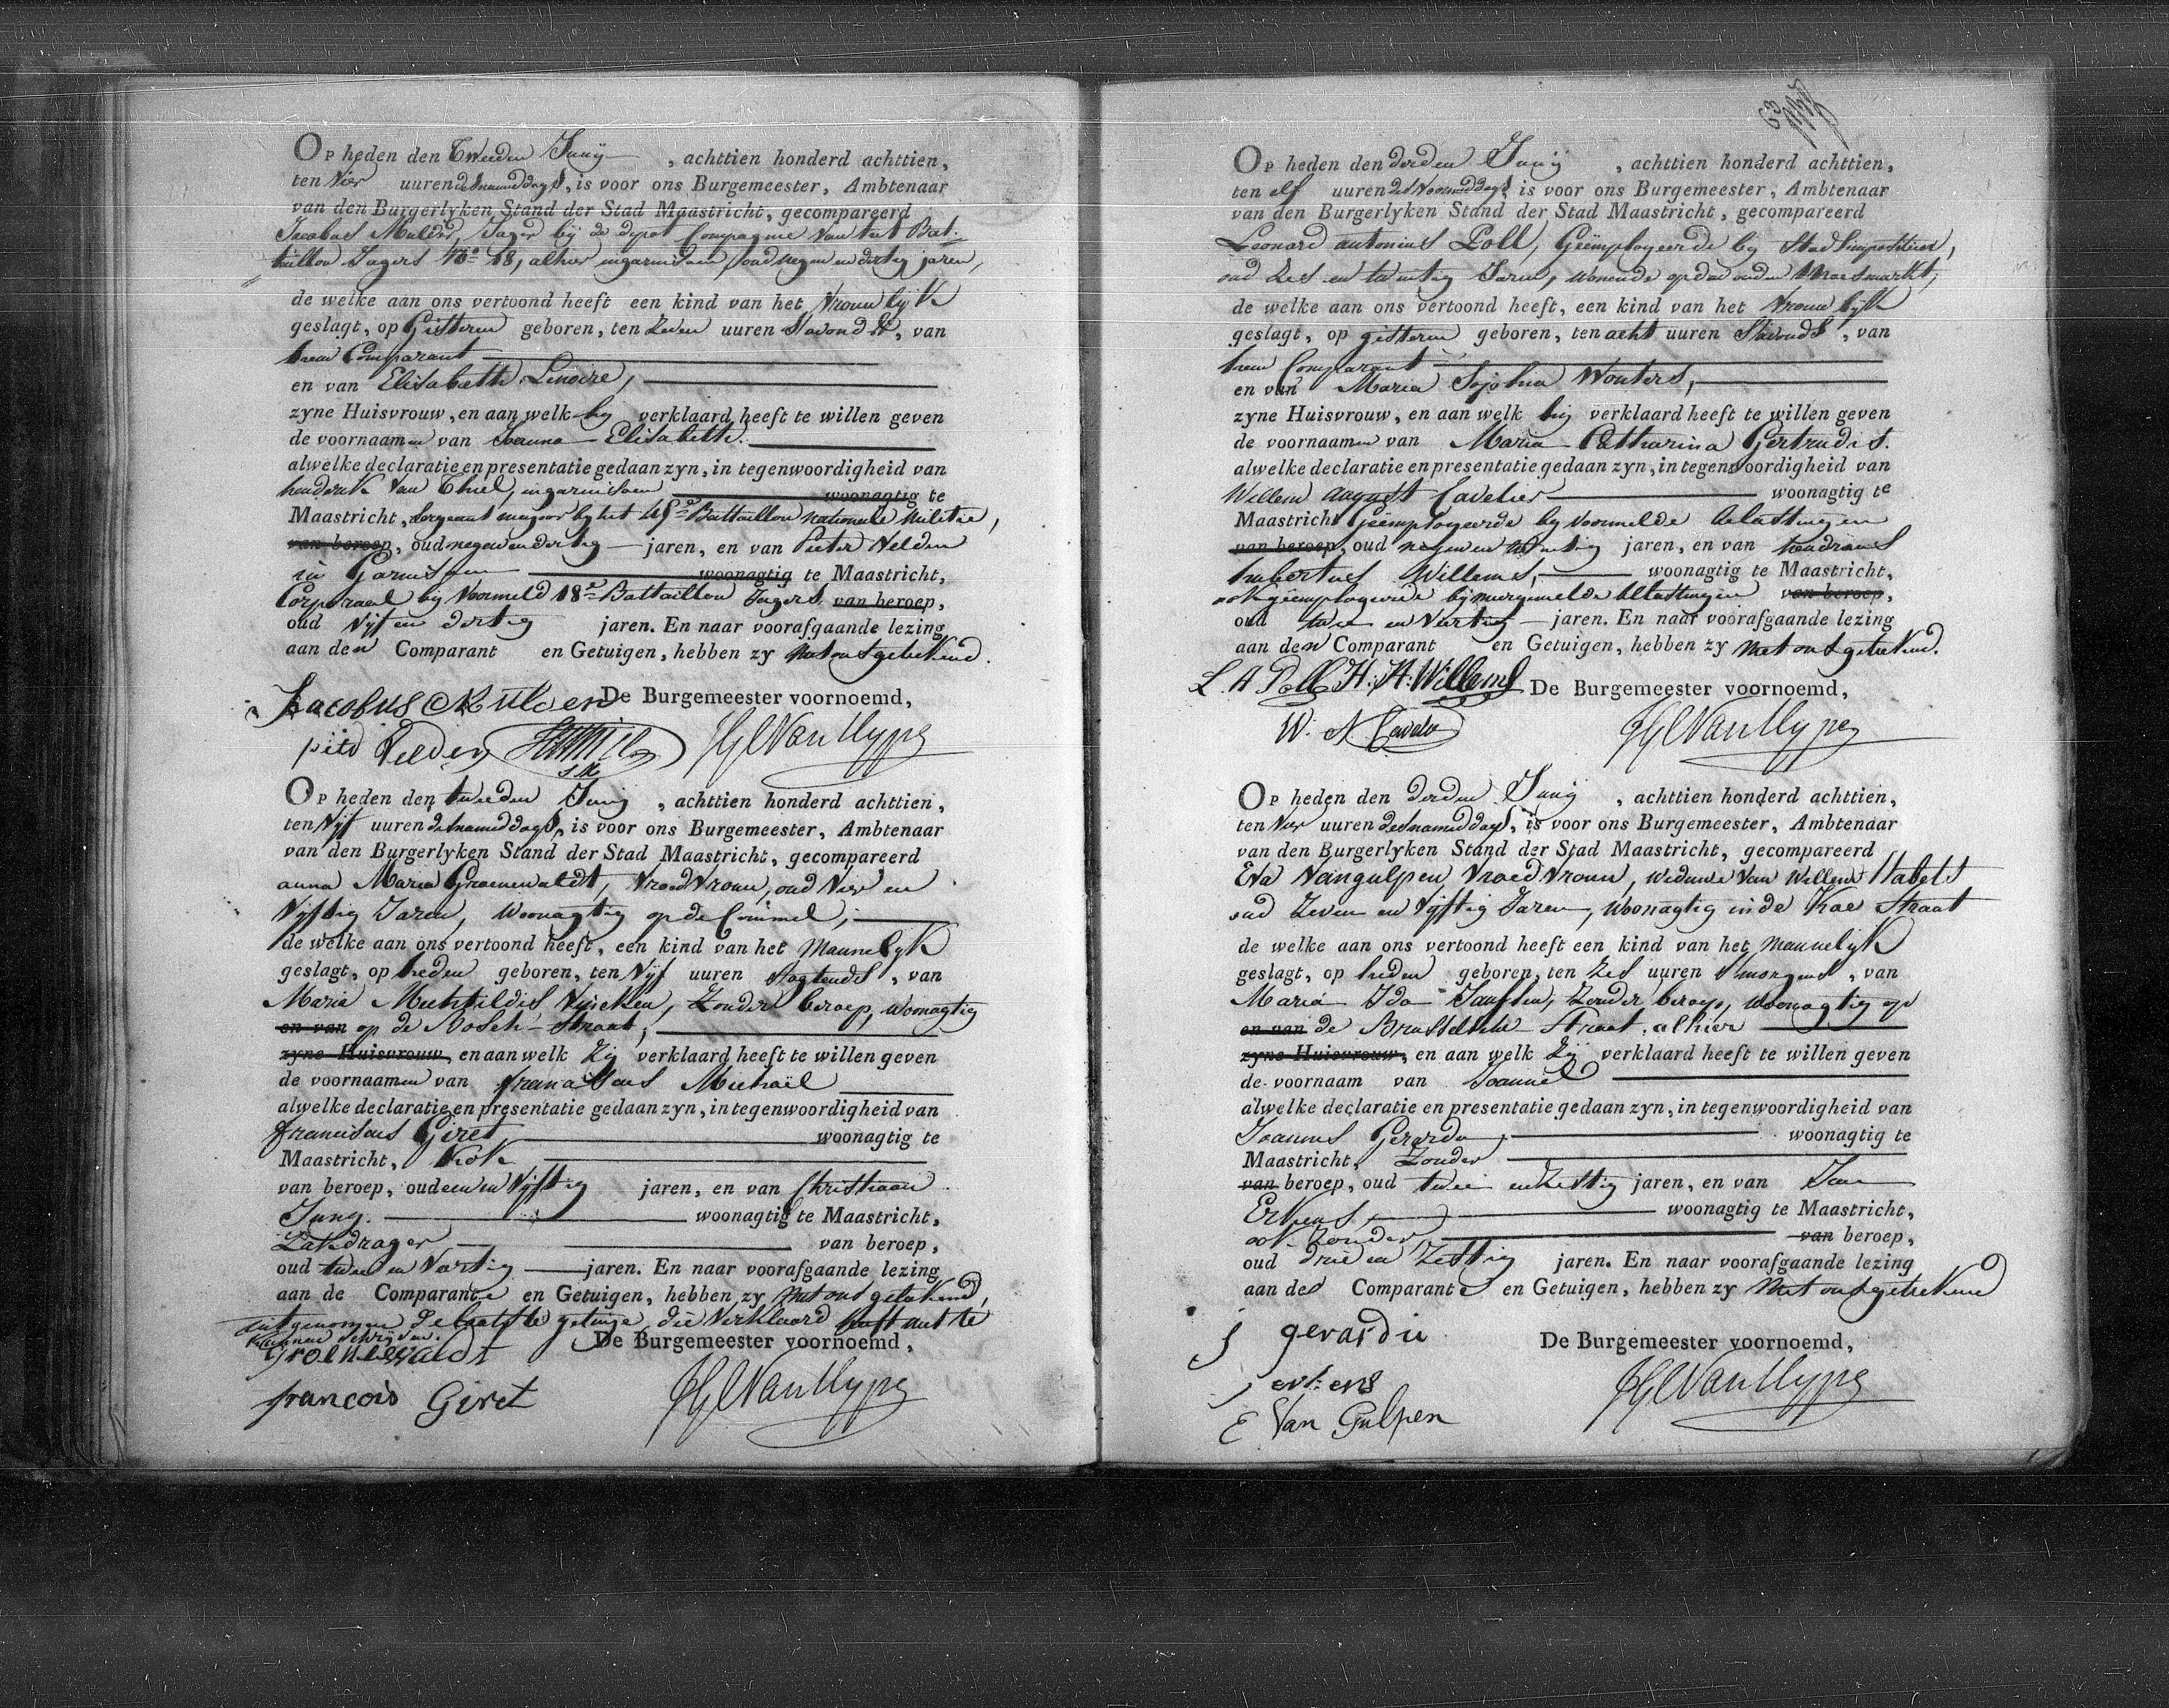 Op heden den Tweeden Junij , achttien honderd achttien,
ten Vier uuren desnamiddags, is voor ons Burgemeester, Ambtenaar
van den Burgerlyken Stand der Stad Maastricht, gecompareerd
Jacobus Mulder, Jager bij de depot Compagnie van het Bat-
taillon Jagers No 18, alhier ingarnisoen, oud negen en dertig jaren,
de welke aan ons vertoond heeft een kind van het Vrouwlijk
geslagt, op Gisteren geboren, ten Zeven uuren Savonds, van
hem Comparant
en van Elisabeth Linoire,
zyne Huisvrouw, en aan welk hy verklaard heeft te willen geven
de voornaamen van Joanna Elisabeth.
alwelke declaratie en presentatie gedaan zyn, in tegenwoordigheid van
hendrik van Thiel, ingarnisoen woonagtig te
Maastricht, Sergeant majoor by het Battaillon nationale Militie,
van beroep, oud negenendertig jaren, en van Pieter Velden
in Garnisoen woonagtig te Maastricht,
Corporaal bij Voormeld 18e Battaillon Jagers van beroep,
oud Vijf en dertig jaren. En naar voorafgaande lezing
aan den Comparant en Getuigen, hebben zy met ons getekend.
Jacobus Mulder De Burgemeester voornoemd,
Velden
Op heden den tweeden Junij , achttien honderd achttien,
ten Vijf uuren desnamiddags, is voor ons Burgemeester, Ambtenaar
van den Burgerlyken Stand der Stad Maastricht, gecompareerd
anna Maria Groenewaldt, Vroedvrouw, oud Vier en
Vijftig Jaren, Woonagtig op de Commel;
de welke aan ons vertoond heeft, een kind van het Mannelijk
geslagt, op heden geboren, ten Vijf uuren Sogtends, van
Maria Mechtildis Zonder beroep, woonagtig
en van op de Bosch-Straat,
zyne Huisvrouw, en aan welk Zij verklaard heeft te willen geven
de voornaamen van Michaël
alwelke declaratie en presentatie gedaan zyn, in tegenwoordigheid van
franciscus Giret woonagtig te
Maastricht, Kok
van beroep, oud eenen Vijftig jaren, en van Christiaan
Jung. woonagtig te Maastricht,
Zakdrager van beroep,
oud twee en Veertig jaren. En naar voorafgaande lezing
aan de Comparante en Getuigen, hebben zy met ons getekend,
uitgenomen de laatste getuige, die Verklaard heeft niet te
kunnen schrijven. De Burgemeester voornoemd,
Groenewaldt
francois Giret
Op heden den derden Junij , achttien honderd achttien,
ten elf uuren desvoormiddags is voor ons Burgemeester, Ambtenaar
van den Burgerlyken Stand der Stad Maastricht, gecompareerd
Leonard antonius Poll, Geëmployeerde by Stadsimpositien,
oud Zes en twintig Jaren, wonende op den ouden Maasmarkt;
de welke aan ons vertoond heeft, een kind van het Vrouwlijk
geslagt, op gisteren geboren, ten acht uuren Savonds, van
hem Comparant
en van Maria Sophia Wouters,
zyne Huisvrouw, en aan welk hij verklaard heeft te willen geven
de voornaamen van Maria Catharina Gertrudis.
alwelke declaratie en presentatie gedaan zyn, in tegenwoordigheid van
Willem august Cavelier woonagtig te
Maastricht Geëmployeerde by Voormelde belastingen
van beroep, oud negen en twintig jaren, en van
hubertus Willems, woonagtig te Maastricht,
ook geëmployeerde bij meergemelde belastingen van beroep,
oud twee en Veertig jaren. En naar voorafgaande lezing
aan den Comparant en Getuigen, hebben zy met ons getekend.
L. A Poll H: H: Willems De Burgemeester voornoemd,
Op heden den derden Junij , achttien honderd achttien,
ten Vier uuren desnamiddags, is voor ons Burgemeester, Ambtenaar
van den Burgerlyken Stand der Stad Maastricht, gecompareerd
Eva Vangulpen Vroedvrouw, Weduwe van Willem Habets
oud Zeven en Vijftig Jaren, Woonagtig in de Kae Straat
de welke aan ons vertoond heeft een kind van het Mannelijk
geslagt, op heden geboren, ten Zes uuren Smorgens, van
Maria Ida Janssen, Zonder beroep, woonagtig op
en van de Brusselsche Straat, alhier
zyne Huisvrouw, en aan welk Zij verklaard heeft te willen geven
de voornaam van Joannes
alwelke declaratie en presentatie gedaan zyn, in tegenwoordigheid van
Joannes woonagtig te
Maastricht, Zonder
van beroep, oud twee en Zestig jaren, en van Jan
Erkens, woonagtig te Maastricht,
ook Zonder van beroep,
oud drie en Zestig jaren. En naar voorafgaande lezing
aan de Comparante en Getuigen, hebben zy met ons getekend
j gerardu De Burgemeester voornoemd,
j erkens
E Van Gulpen